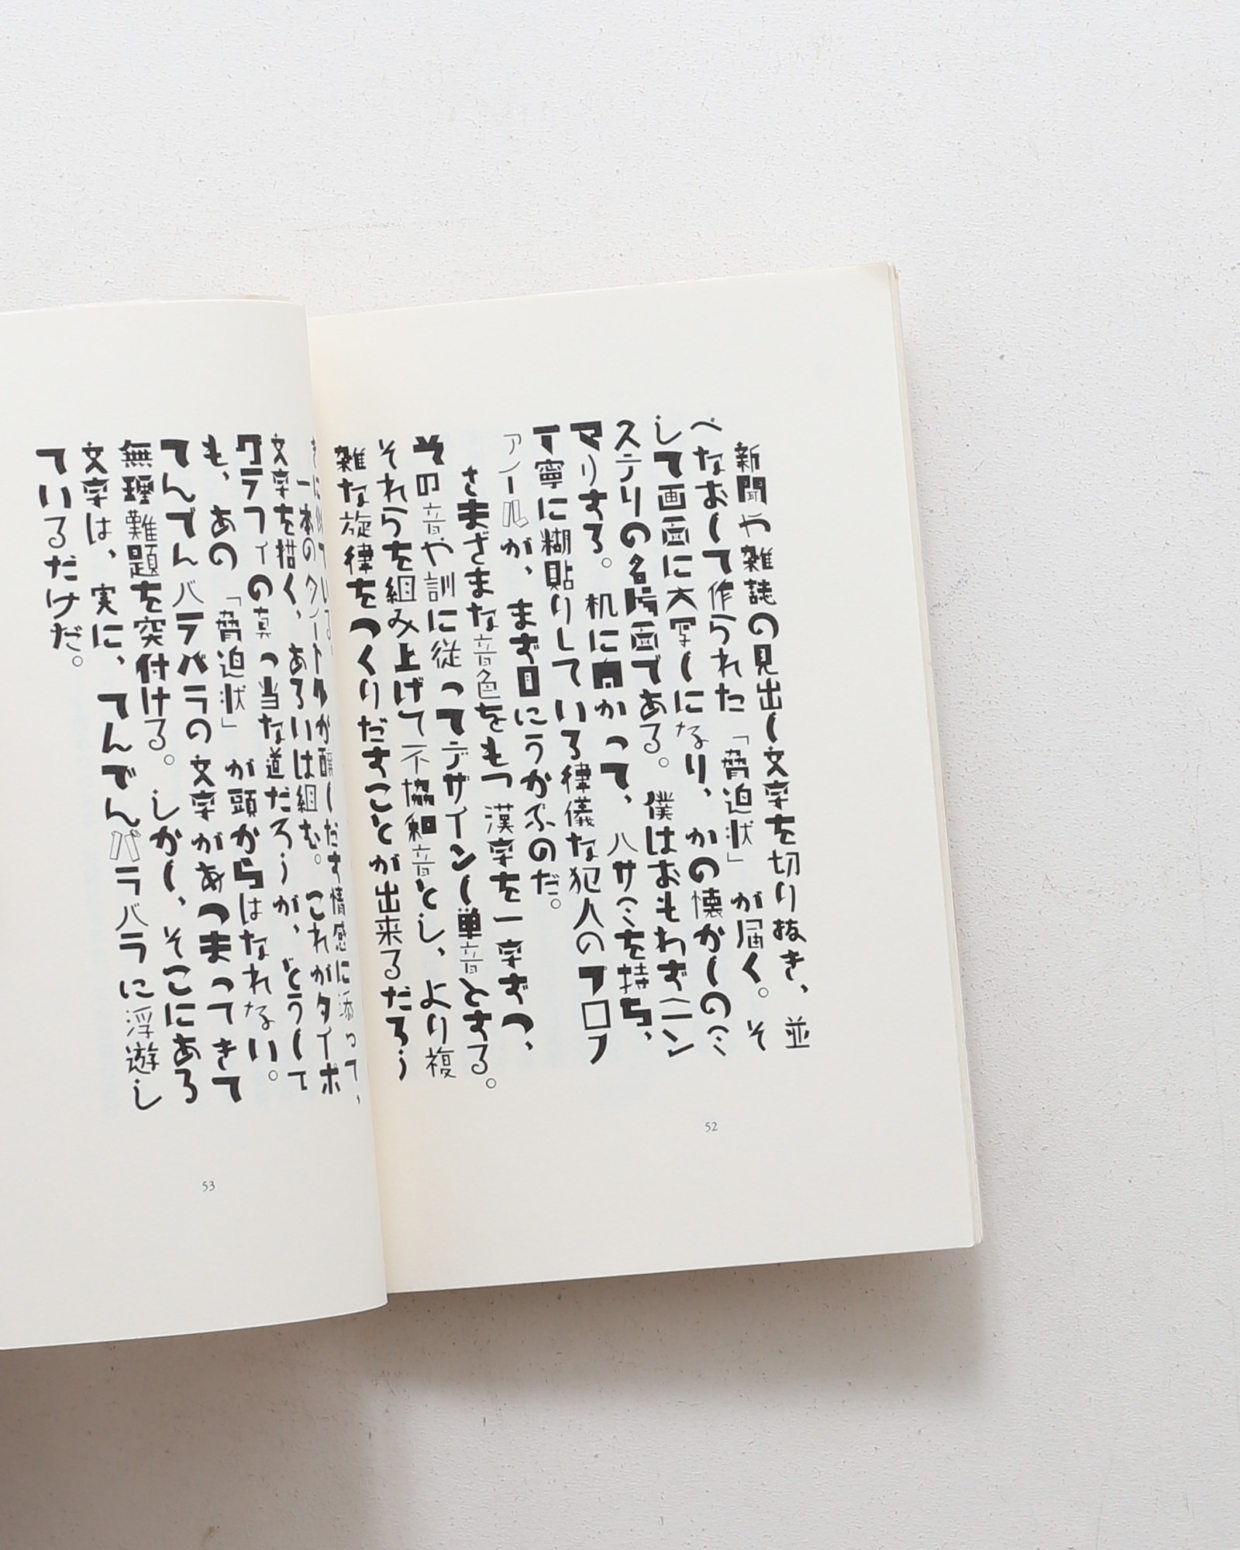 新聞や雑誌の見出し文字を切り抜き、並
べなおして作られた「脅迫状」が届く。そ
して画面に大写しになり、かの懐かしのミ
ステリの名場面である。僕はおもわずニン
マリする。机に向かって、ハサミを持ち、
丁寧に糊貼りしている律儀な犯人のプロフ
ァイールが、まず目にうかぶのだ。
さまざまな音色をもつ漢字を一字ずつ、
その音や訓に従ってデザインし単音とする。
それらを組み上げて不協和音とし、より複
雑な旋律をつくりだすことが出来るだろう
52
に似ている。
一本のタイトルが醸しだす情感に添って、
文字を描く、あるいは組む。これがタイポ
グラフィの真っ当な道だろうが、どうして
も、あの「脅迫状」が頭からはなれない。
てんでんバラバラの文字があつまってきて
無理難題を突付ける。しかし、そこにある
文字は、実に、てんでんバラバラに浮遊し
ているだけだ。
53